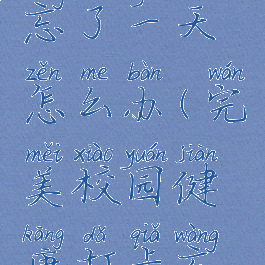 忘了一天
zěn me bàn wán
怎么办(完
měi xiào yuán jiàn
美校园健
kāng dǎ qiǎ wàng
康打卡忘